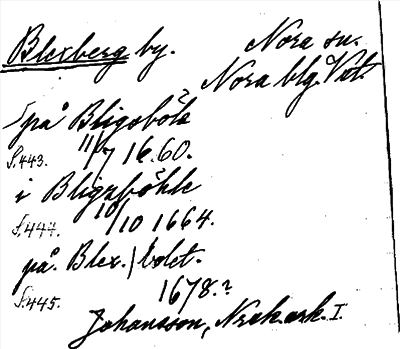 Blexberg by. Nora sn.
Nora blg. Vstm.
på Bligoböle
S.443. 11/7 1660.
i Bligzböhle
S.444. 10/10 1664.
på. Blex./bolet.
S.445. 1678.?
Johansson, Noraskark. I.